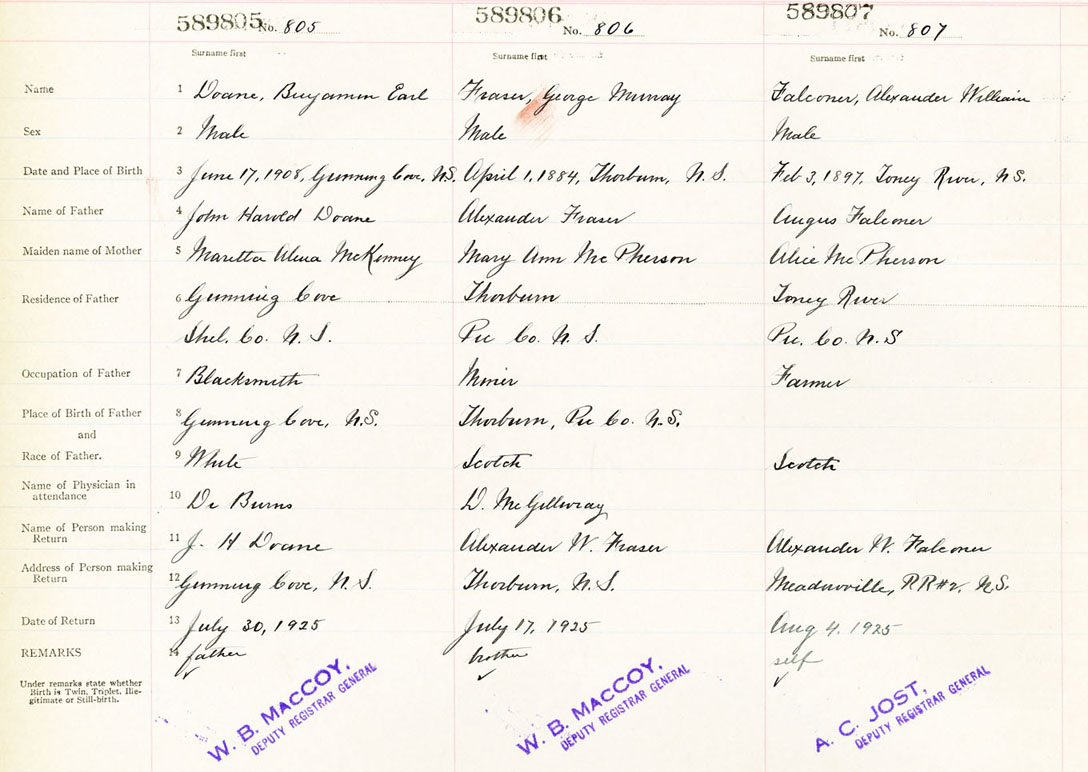 589805 No. 805 589806 No. 806 589807 No. 807
Surname first Surname first Surname first
Name 1 Doane, Benjamin Earl Fraser, George Murray Falconer, Alexander William
Sex 2 Male Male Male
Date and Place of Birth 3 June 17, 1908, Gunning Cove, N.S. April 1, 1884, Thorburn, N. S. Feb 3, 1897, Toney River, N.S.
Name of Father 4 John Harold Doane Alexander Fraser Angus Falconer
Maiden name of Mother 5 Maretta Alena McKenney Mary Ann Mc Pherson Alice Mc Pherson
Residence of Father 6 Gunning Cove Thorburn Toney River
Shel. Co. N. S. Pic Co. N. S. Pic. Co. N. S
Occupation of Father 7 Blacksmith Miner Farmer
Place of Birth of Father 8 Gunning Cove, N.S. Thorburn, Pic Co. N.S.
and
Race of Father. 9 White Scotch Scotch
Name of Physician in
attendance 10 Dr Burns D. McGillivray
Name of Person making
Return 11 J. H Doane Alexander W. Fraser Alexander W. Falconer
Address of Person making
Return 12 Gunning Cove, N.S. Thorburn, N.S. Meadowville, RR#2, N.S.
Date of Return 13 July 30, 1925 July 17, 1925 Aug 4. 1925
REMARKS 14 father brother self
Under remarks state whether
Birth is Twin, Triplet, Ille-
gitimate or Still-birth.
W. B. MACCOY, W. B. MACCOY, A. C. JOST,
DEPUTY REGISTRAR GENERAL DEPUTY REGISTRAR GENERAL DEPUTY REGISTRAR GENERAL